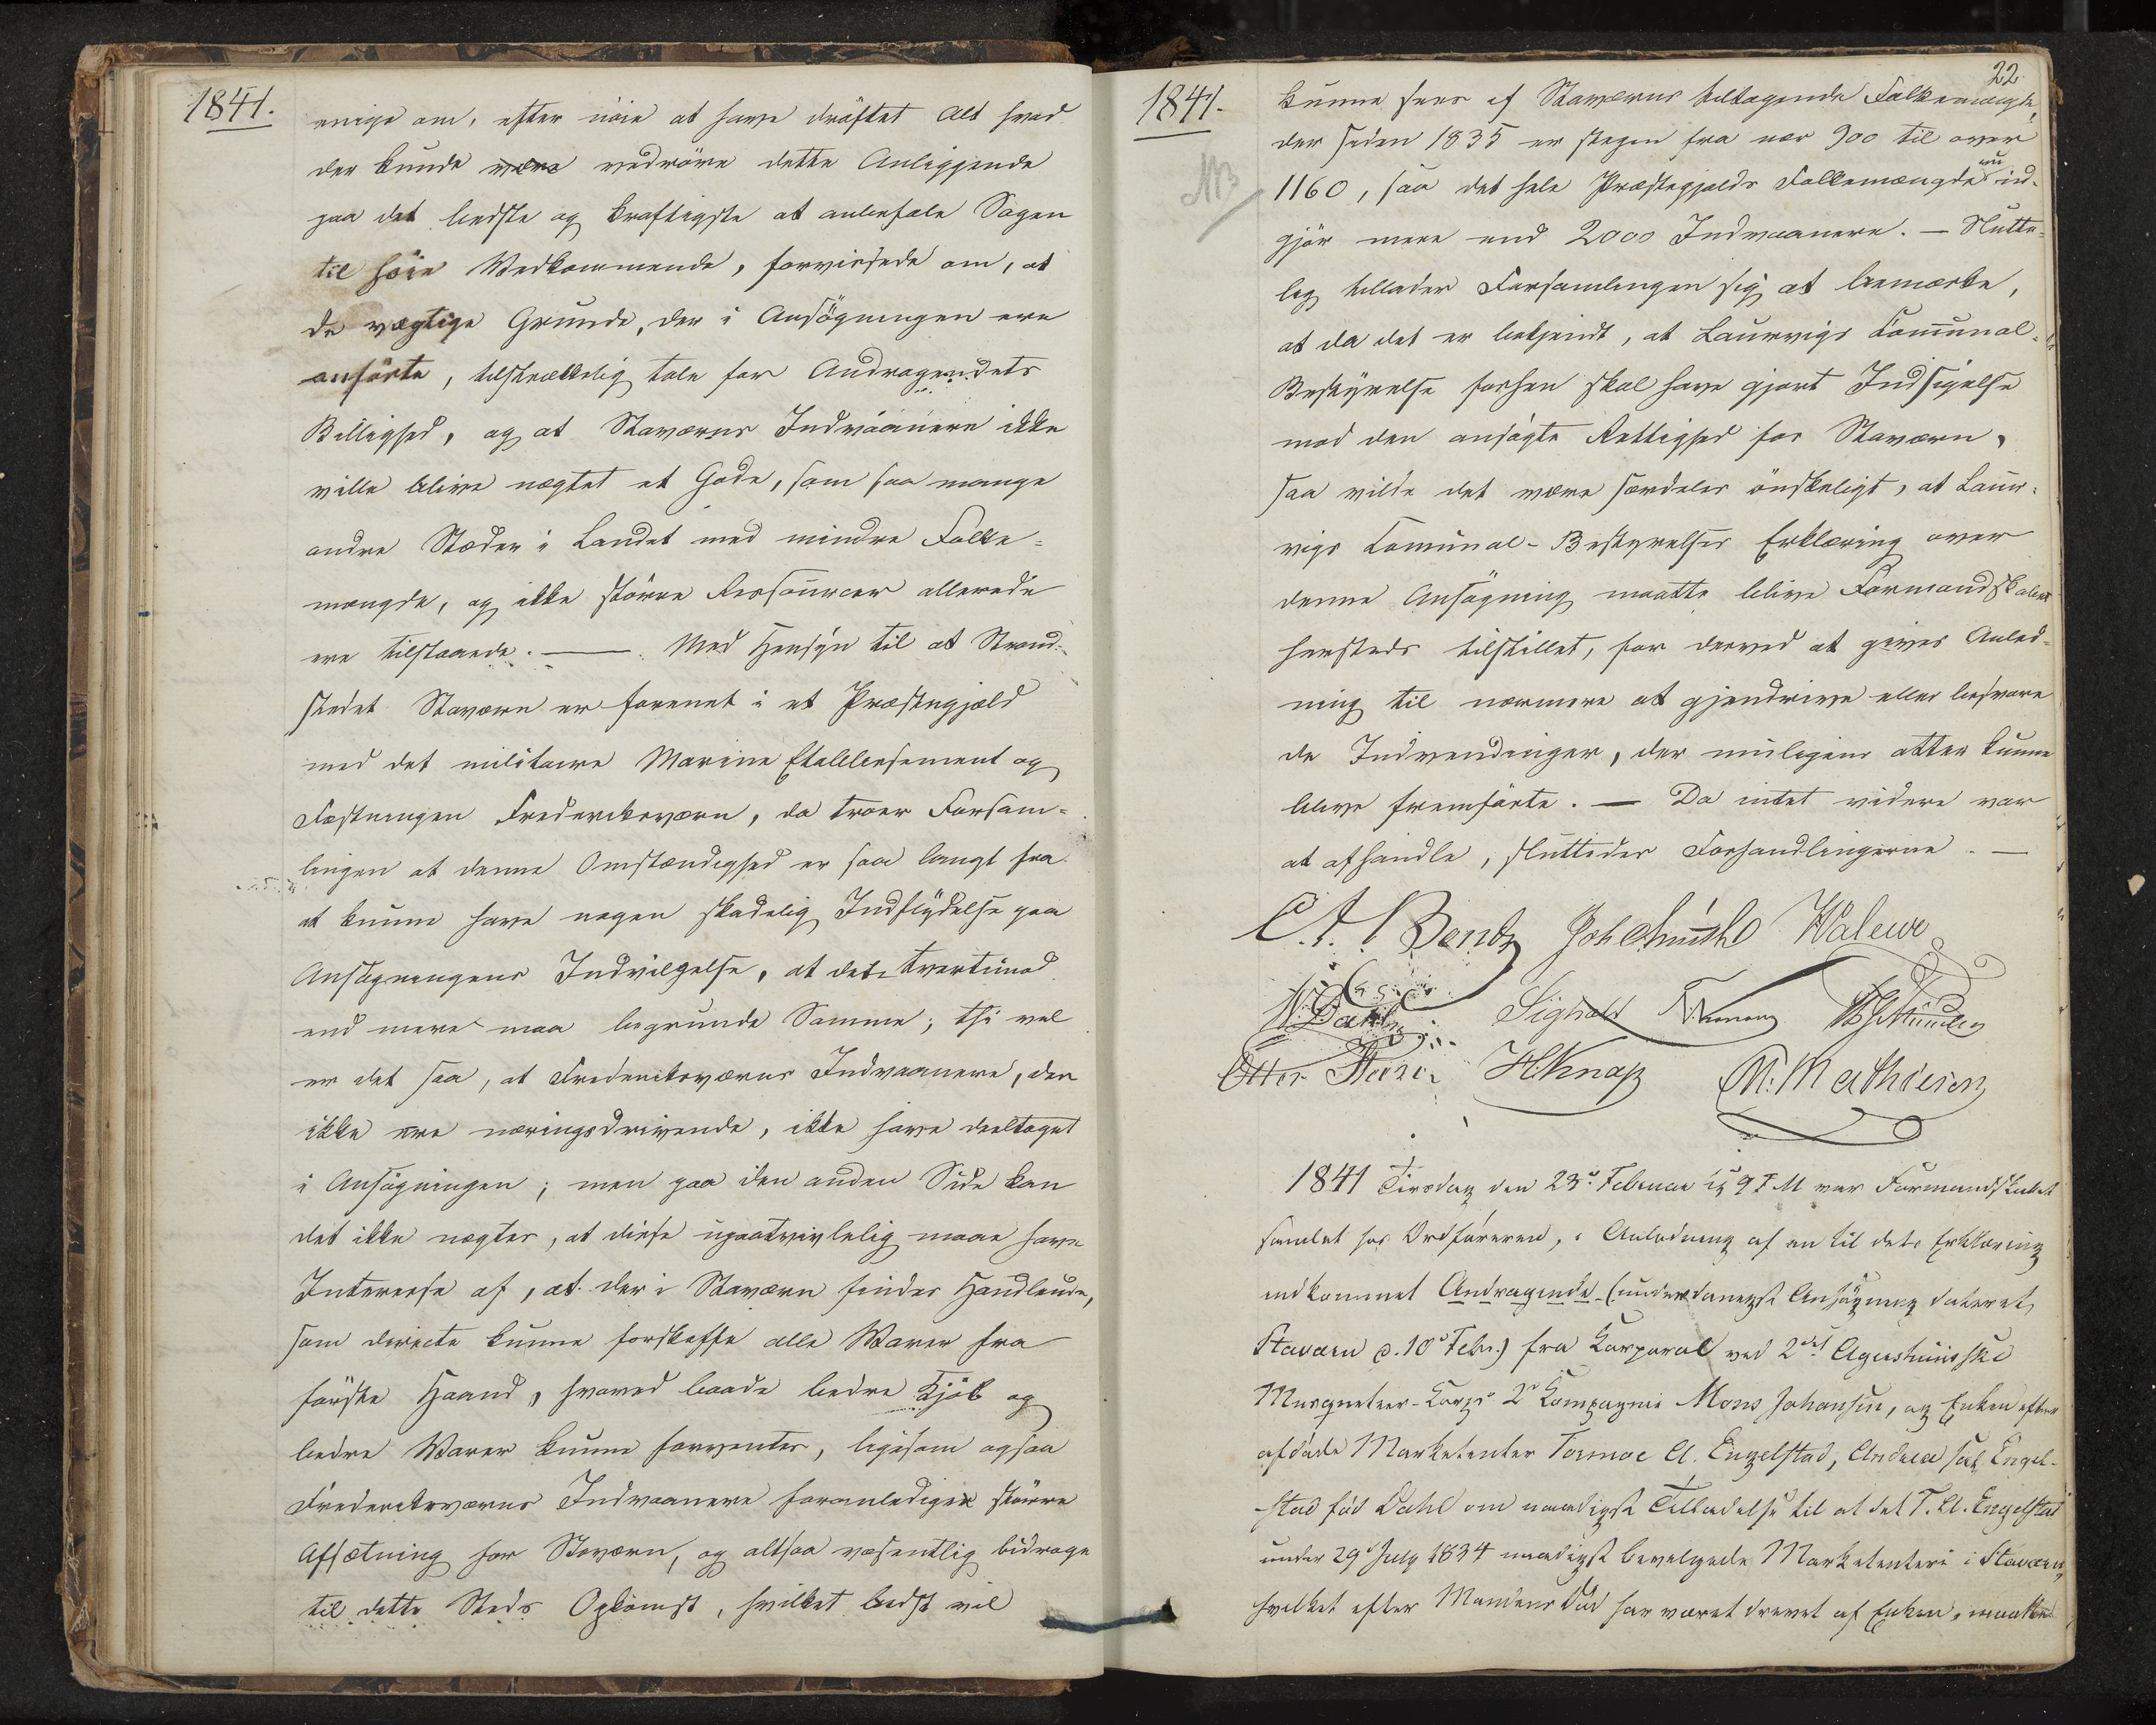 1841.
enige om, efter nöie at have dröftet Alt hvad
der kunde være vedröre dette Anliggende
paa det bedste og kraftigste at anbefale Sagen
til höie Vedkommende, forvissede om, at
de vægtige Grunde, der i Ansögningen ere
anförte, tilstrækkelig tale for Andragendets
Billighed, og at Staværns Indvaanere ikke
ville blive nægtet et Gode, som saa mange
andre Stæder i Landet med mindre Folke=
mængde, og ikke större Ressourcer allerede
ere tilstaaede. — Med Hensyn til at Strand-
stedet Staværn er forenet i et Præstegjæld
med det militaire Marine Etablissement og
Fæstningen Frederiksværn, da troer Forsam=
lingen at denne Omstændighed er saa langt fra
at kunne have nogen skadelig Indflydelse paa
Ansögningens Indvilgelse, at det tvertimod
end mere maa begrunde Samme; thi vel
er det saa, at Frederiksværns Indvaanere, der
ikke ere næringsdrivende, ikke have deeltaget
i Ansögningen; men paa den anden Side kan
det ikke nægtes, at disse upaatvivlelig maae have
Interesse af, at der i Staværn findes Handlende,
som directe kunne forskaffe alle Varer fra
förste Haand, hvorved baade bedre Kjöb og
bedre Varer kunne forventes, ligesom ogsaa
Frederiksværns Indvaanere foranlediger större
Afsætning for Staværn, og altsaa væsentlig bidrage
til dette Steds Opkomst, hvilket bedst vil
22
1841.
kunne sees af Staværns tiltagende Folkemængde,
der siden 1835 er stegen fra nær 900 til over
NB
1160, saa det hele Præstegjelds Folkemængde nu ud-
gjör mere end 2000 Indvaanere. — Slutte-
lig tillader Forsamlingen sig at bemærke,
at da det er bekjendt, at Laurvigs Communal-
Bestyrelse forhen skal have gjort Indsigelse
mod den ansögte Rettighed for Staværn,
saa vilde det være særdeles önskeligt, at Laur-
vigs Communal-Bestyrelses Erklæring over
denne Ansögning maatte blive Formandskabet
hersteds tilstillet, for derved at gives Anled-
ning til nærmere at gjendrive eller besvare
de Indvendinger, der muligens atter kunne
blive fremförte. — Da intet videre var
at afhandle, sluttedes Forhandlingerne. —
C. A. Bentz
N. Dahl Sigholt
H. Knap M. Mathiesen
1841 Tirsdag den 23de Februar Kl 9 F M var Formandskabet
samlet hos Ordföreren, i Anledning af en til dets Erklæring
indkommet Andragende (underdanigst Ansögning dateret
Staværn d. 10de Febr.) fra Korporal ved 2det Agershuusske
Musqueteer-Corps 2det Kompagnie Mons Johansen, og Enken efter
afdöde Marketenter Tormoe A. Engelstad, Andrea sal. Engel-
stad föd Dahl om naadigst Tilladelse til at det T. A. Engelstad
under 29de July 1834 naadigst bevilgede Marketenteri i Staværn,
hvilket efter Mandens Död har været drevet af Enken, maatte